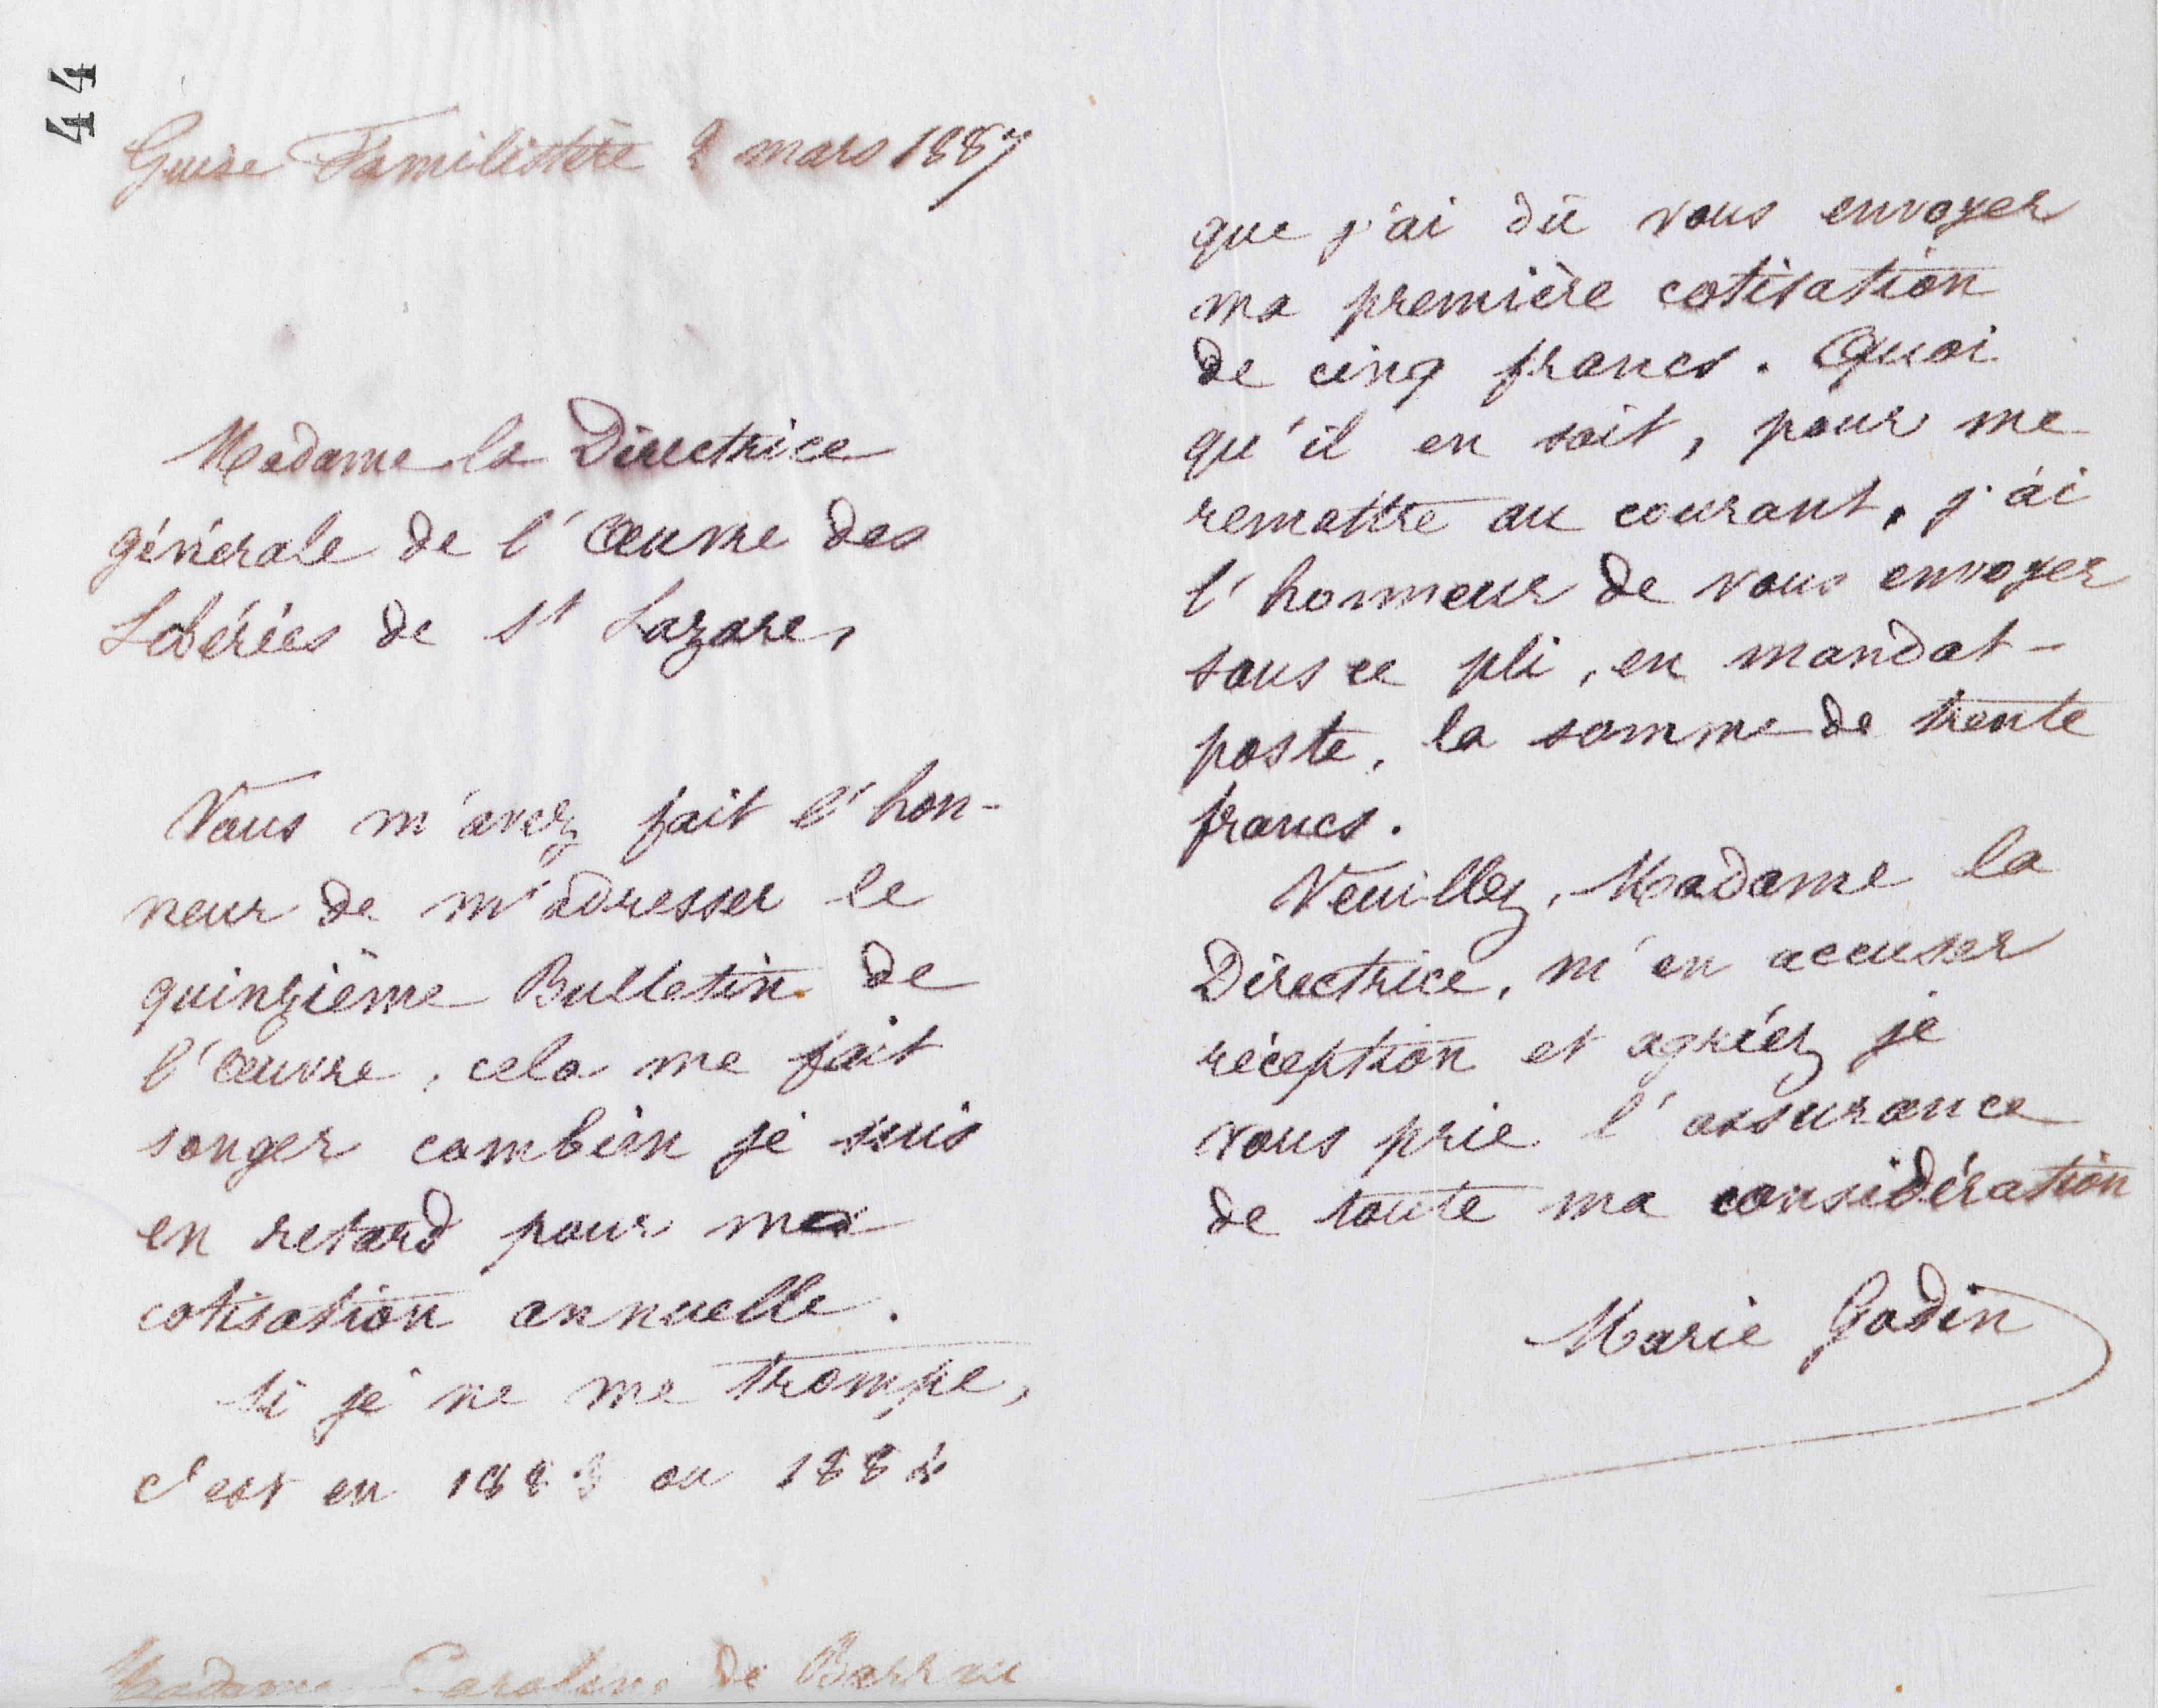 44
Guise Familistère 2 mars 1887
Madame la Directrice
générale de l'Œuvre des
Libérées de St Lazare,
Vous m'avez fait l'hon-
neur de m'adresser le
quinzième Bulletin de
l'Œuvre, cela me fait
songer combien je suis
en retard pour ma
cotisation annuelle.
Si je ne me trompe,
c'est en 1883 ou 1884
Madame Caroline de Barrau
que j'ai dû vous envoyer
ma première cotisation
de cinq francs. Quoi
qu'il en soit, pour me
remettre au courant, j'ai
l'honneur de vous envoyer
sous ce pli, en mandat-
poste, la somme de trente
francs.
Veuillez, Madame la
Directrice, m'en accuser
réception et agréez je
vous prie l'assurance
de toute ma considération
Marie Godin